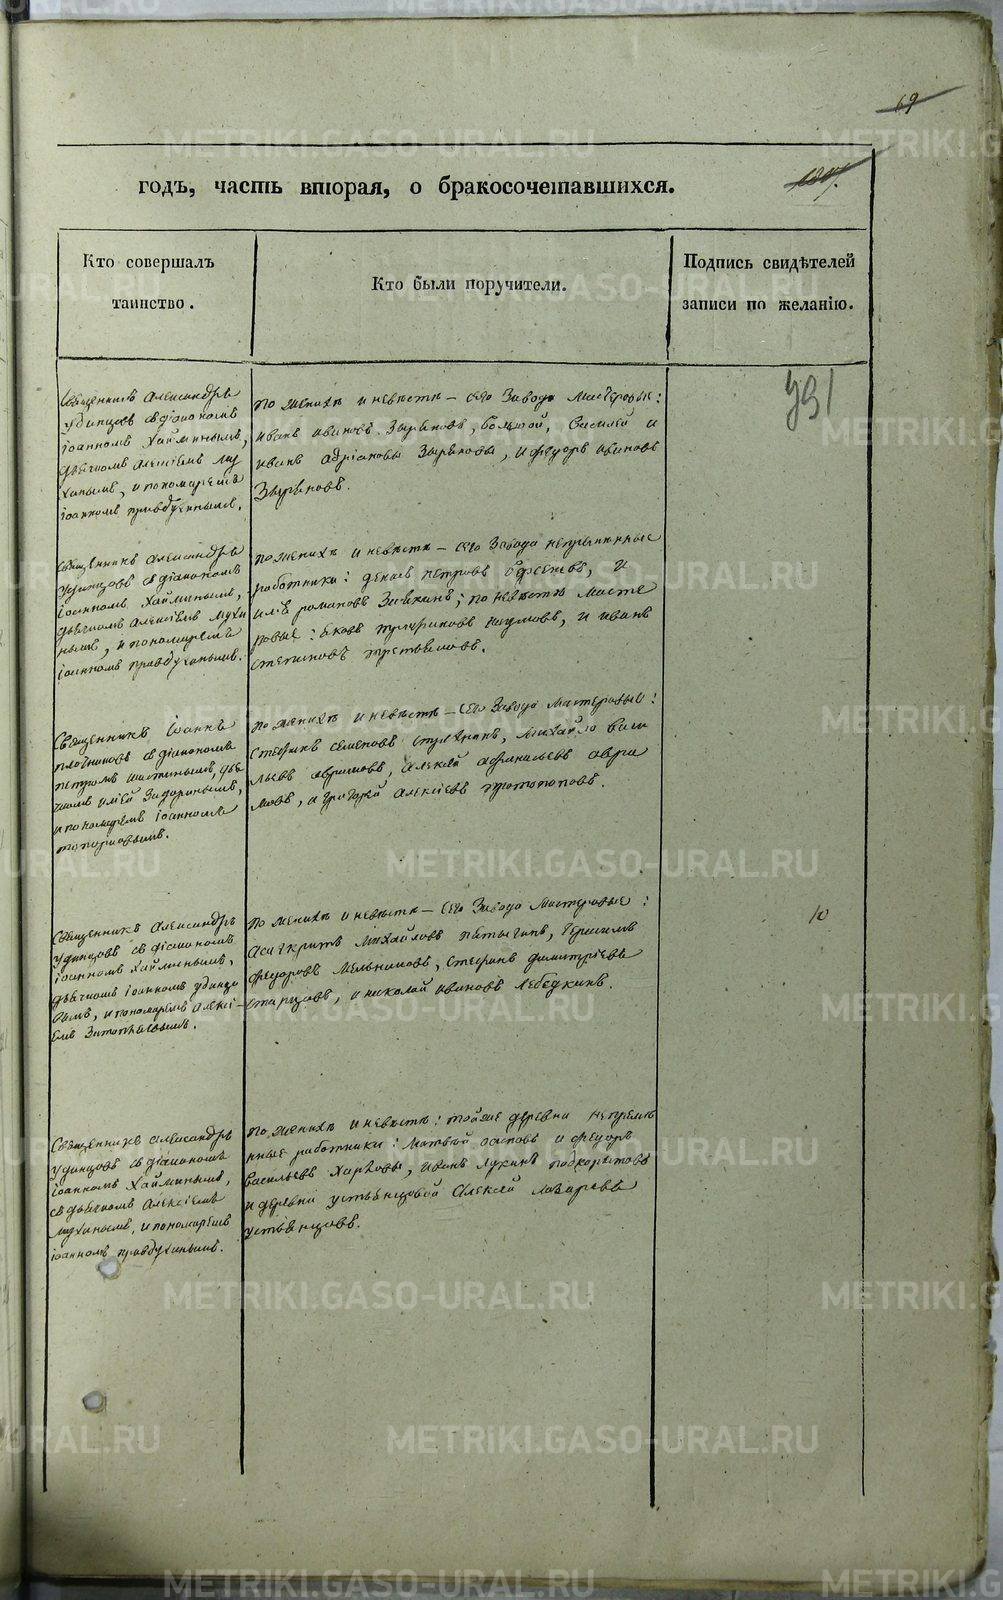 69
METRIKI.GASO-URAL.RU
годъ, часть вторая, о бракосочетавшихся.
Кто совершалъ
таинство.
Кто были поручители.
Подпись свидѣтелей
записи по желанію.
Священникъ Александръ
Удинцовъ съ діакономъ
Іоанномъ Хайминымъ,
дьячкомъ Алексіемъ Му
хинымъ, и пономаремъ
Іоанномъ Правдухинымъ.
По женихѣ и невѣстѣ – сего Завода Мастеровые:
Иванъ Ивановъ Зыряновъ, большой, Василей и
Иванъ Адріановы Зыряновы, и Федоръ Ивановъ
Зыряновъ.
Священникъ Александръ
Удинцовъ съ діакономъ
Іоанномъ Хайминымъ,
дьячкомъ Алексіемъ Мухи
нымъ, и пономаремъ
Іоанномъ Правдухинымъ.
По женихѣ и невѣстѣ – сего Завода непремѣнные
работники: Петровъ и
Романовъ по невѣстѣ Масте
ровые: Наумовъ, и Иванъ
Степановъ Третьяковъ.
Священникъ Іоаннъ
Плотниковъ съ діакономъ
Петромъ дья
чкомъ Иліей Задоринымъ,
и пономаремъ Іоанномъ
Топорковымъ.
По женихѣ и невѣстѣ – сего Завода Мастеровые:
Стефанъ Семеновъ Михайло Васи
льевъ Аврамовъ, Алексей Афанасьевъ Авра
мовъ, и Григорей Алексіевъ Протопоповъ.
Священникъ Александръ
Удинцовъ съ діакономъ
Іоанномъ Хайминымъ,
дьячкомъ Іоанномъ Удинцо
вымъ, и пономаремъ Алексі–
емъ
По женихѣ и невѣстѣ – сего Завода Мастеровые:
Асигкритъ Михайловъ Пятыгинъ, Герасимъ
Федоровъ Мельниковъ, Стефанъ Димитріевъ
Старцовъ, и Николай Ивановъ Лебедкинъ.
10
Священникъ Александръ
Удинцовъ съ діакономъ
Іоанномъ Хайминымъ,
съ дьячкомъ Алексіемъ
Мухинымъ, и пономаремъ
Іоанномъ Правдухинымъ.
По женихѣ и невѣстѣ: тойже деревни непремѣ
нные работники: Матвѣй Осиповъ и Федоръ
Васильевъ Харловы, Иванъ Лукинъ Подкорытовъ
и деревни Устьянцовой Алексей Лазаревъ
Устьянцовъ.